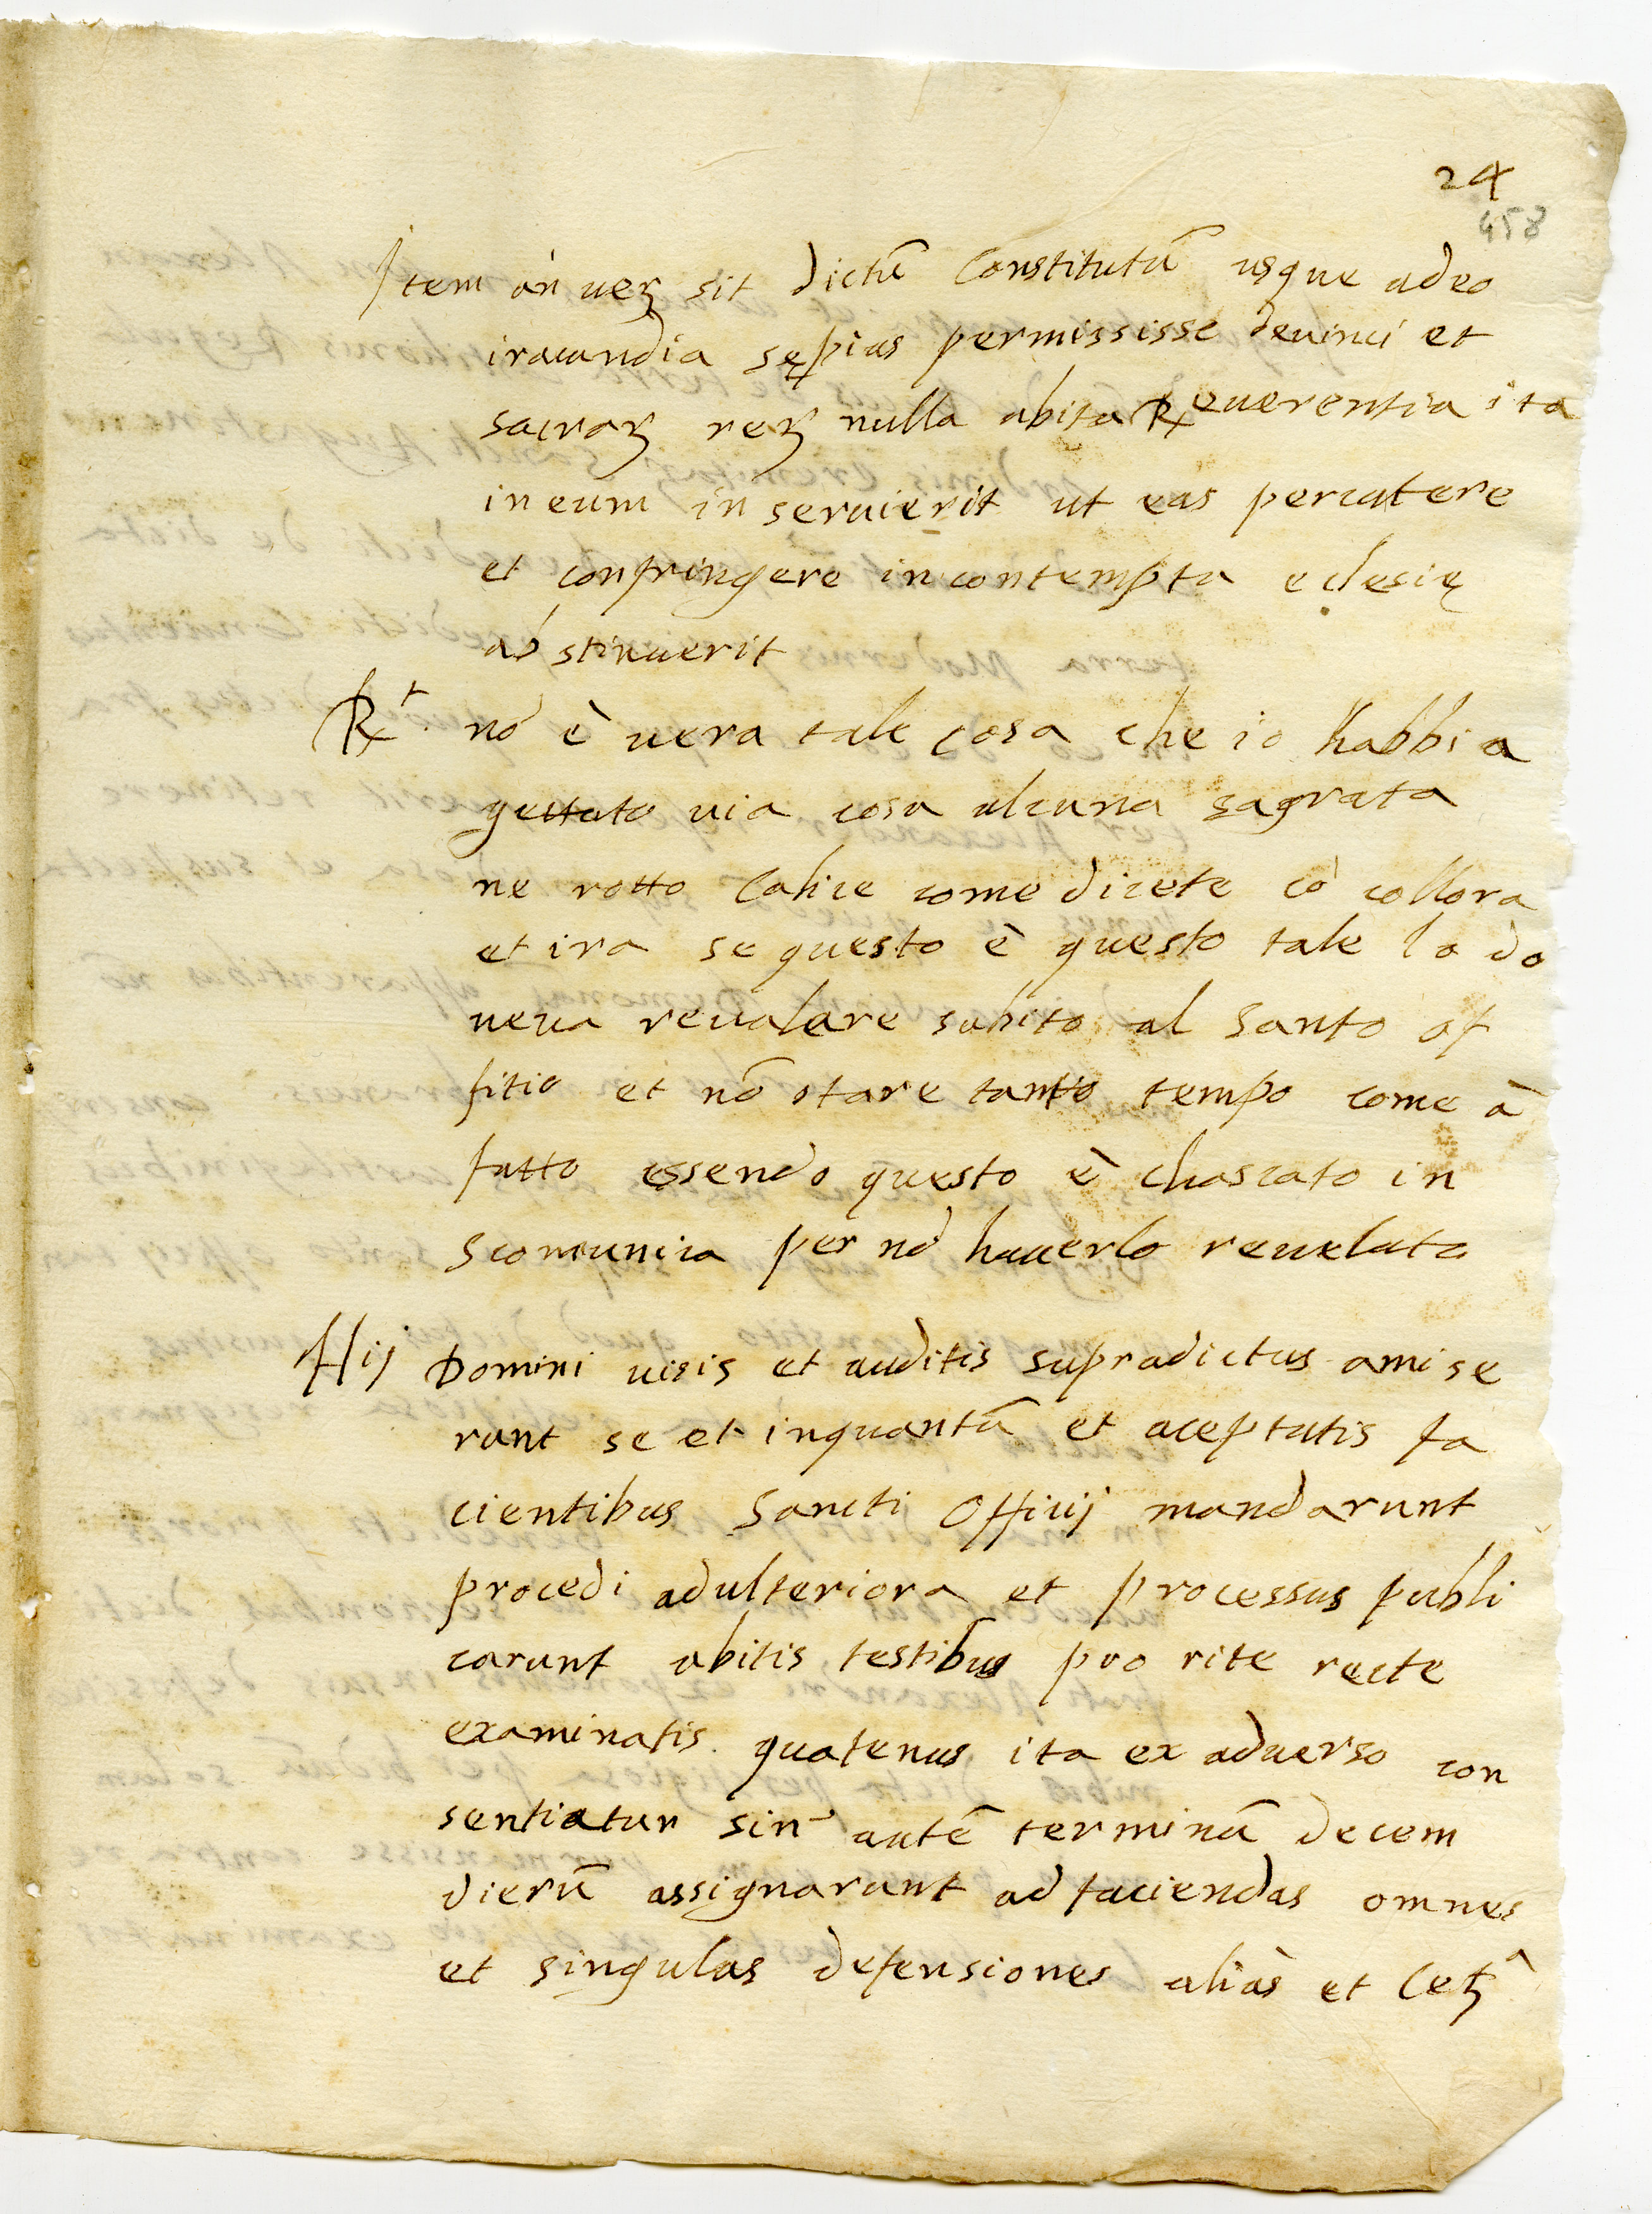 24
458
Item an uerꝝ sit dictū Constitutū usque adeo
iracundia sępius permississe deuinci et
sacraꝝ reꝝ nulla abita Reuerentia ita
in eum inseruierit ut eas percutere
et confringere in contemptu eclesię
abstinuerit
Rt. nō è uera tale cosa che io habbia
gettato uia cosa alcuna sagrata
ne rotto Calice come dicete cō collora
et ira se questo è questo tale lo do
ueua reualare subito al santo of
fitio et nō stare tanto tempo come à
fatto essendo questo è chascato in
scomunica per nō hauerlo reuelato
Hij Domini uisis et auditis supradictus amise
runt se et inquantū et aceptatis fa
cientibus Sancti Offitij mandarunt
procedi adulteriora et processus publi
carunt abitis testibus pro rite recte
examinatis quatenus ita ex aduerso con
sentiatur sin autē terminū decem
dierū assignarunt ad faciendas omnes
et singulas defensiones aliàs et Ceꝝa